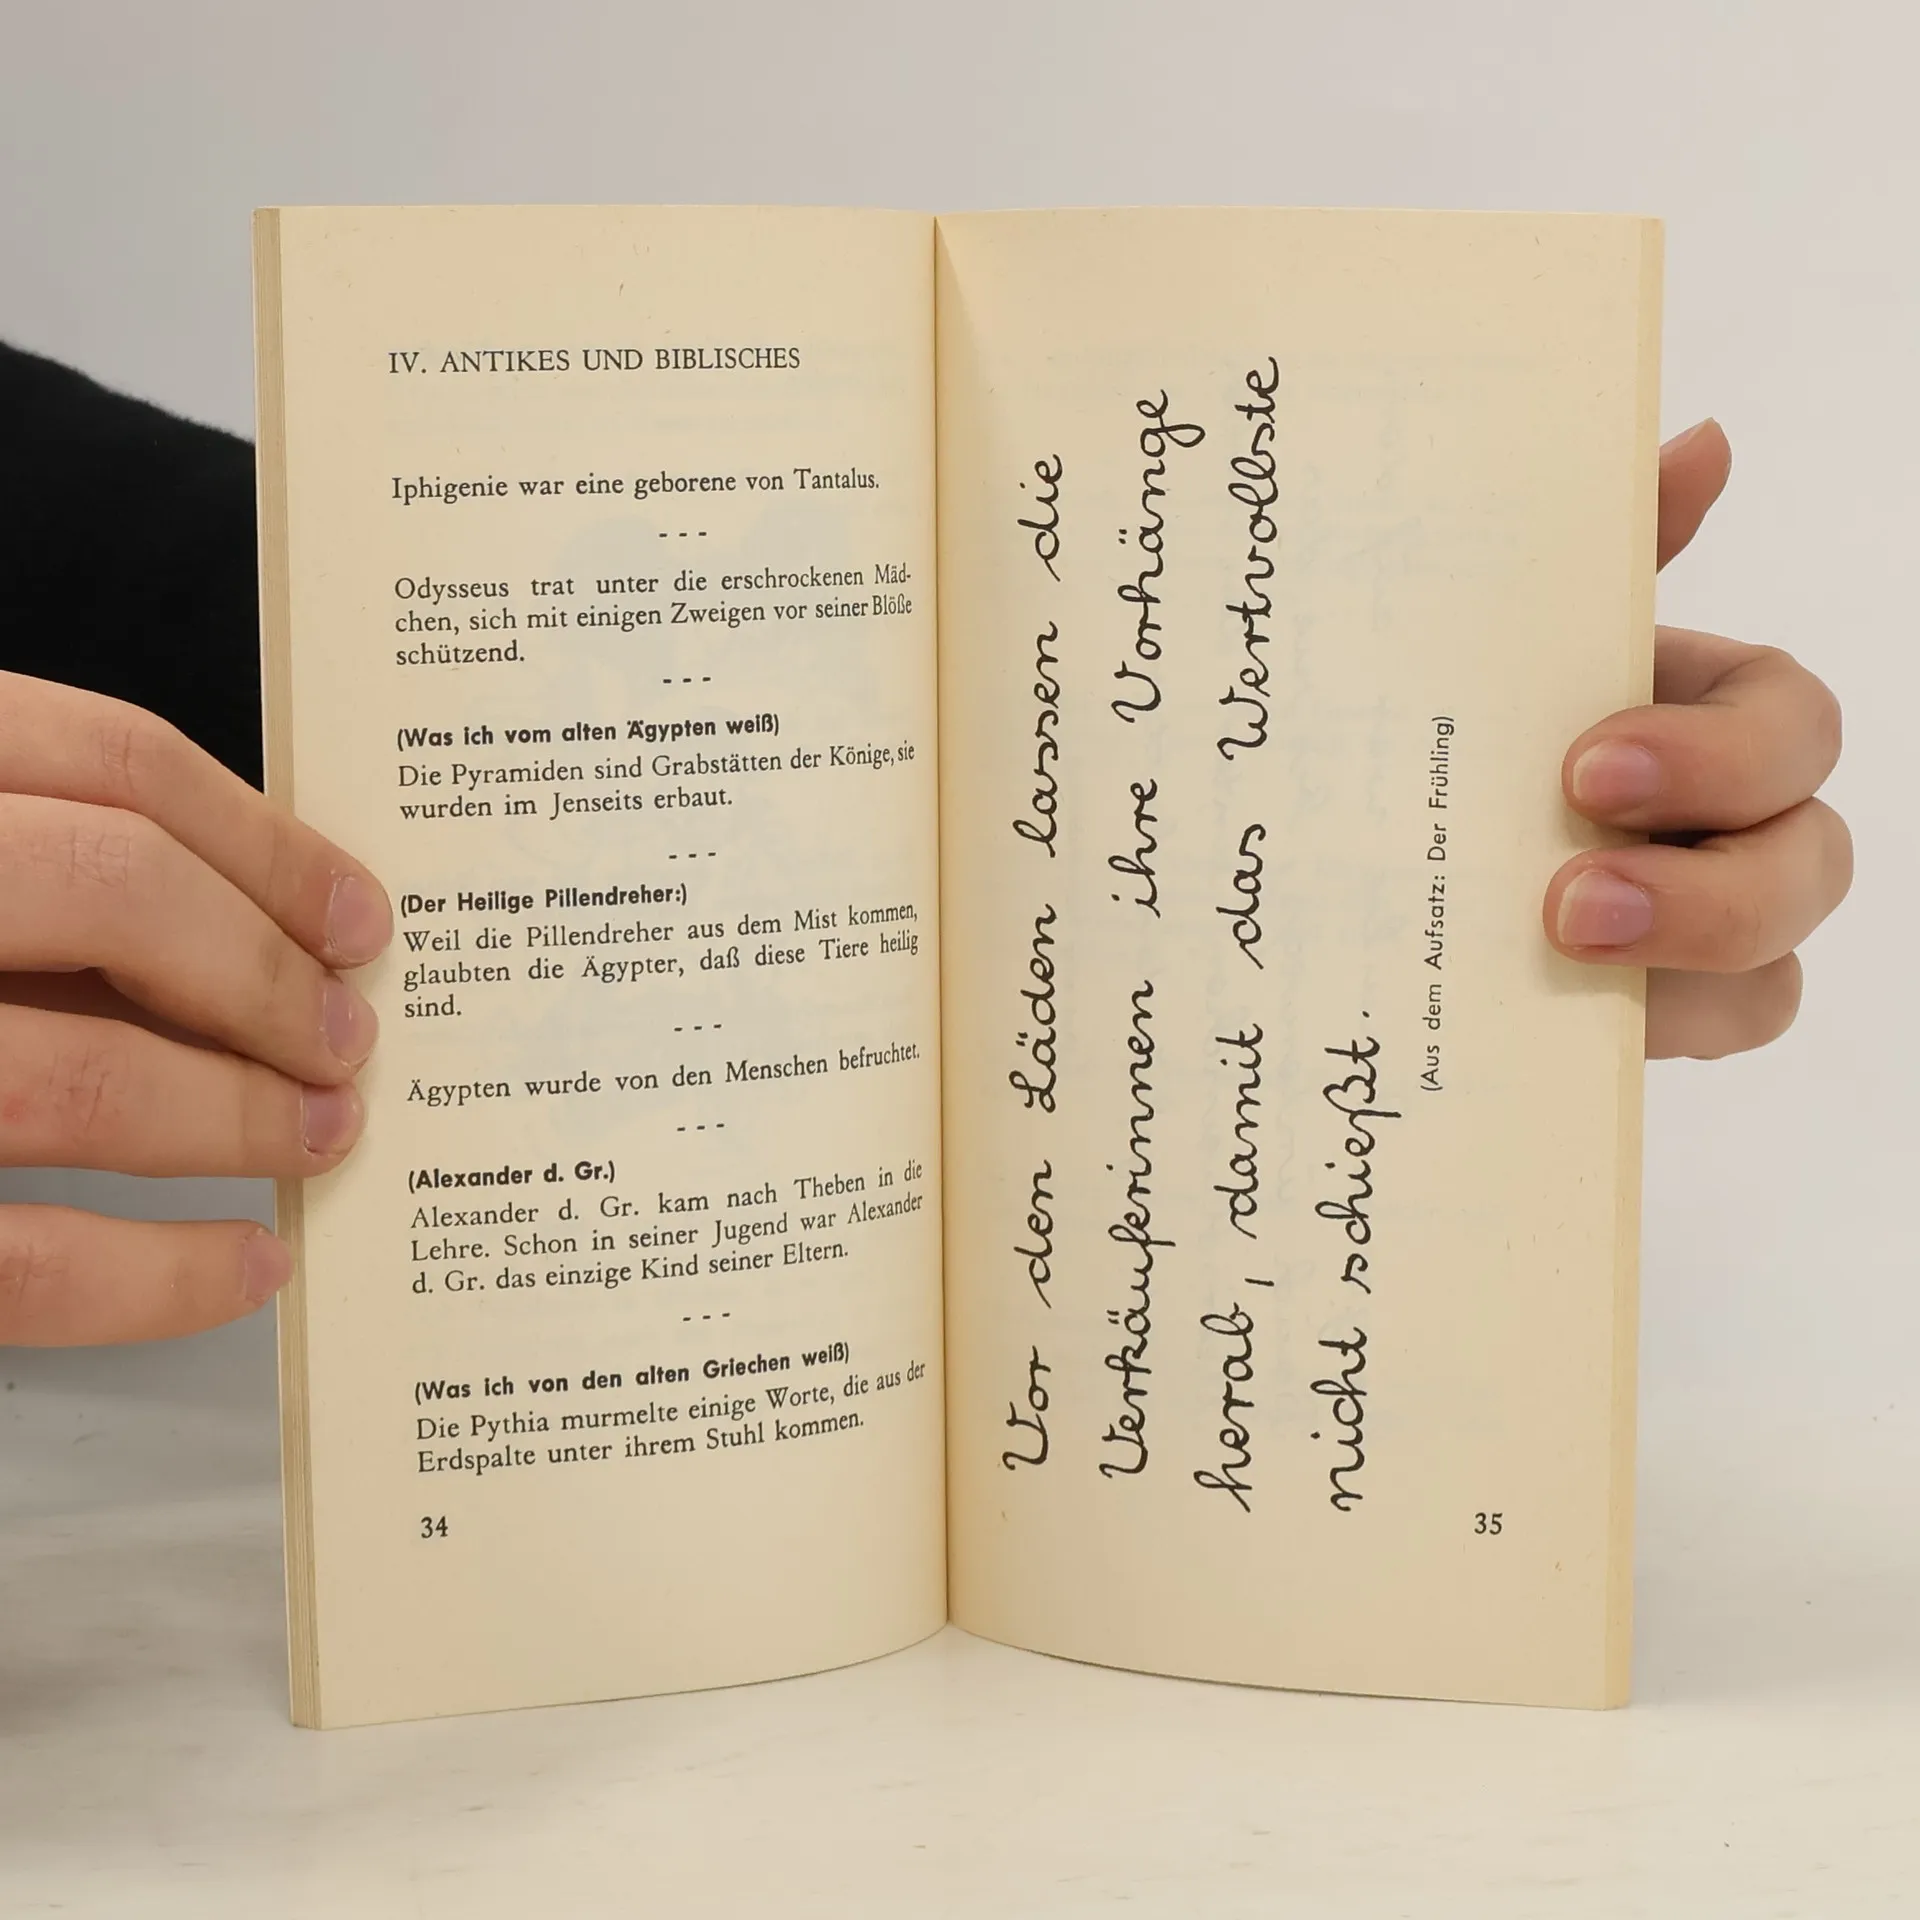 IV. ANTIKES UND BIBLISCHES
Iphigenie war eine geborene von Tantalus.
- - -
Odysseus trat unter die erschrockenen Mäd-
chen, sich mit einigen Zweigen vor seiner Blöße
schützend.
- - -
(Was ich vom alten Ägypten weiß)
Die Pyramiden sind Grabstätten der Könige, sie
wurden im Jenseits erbaut.
- - -
(Der Heilige Pillendreher:)
Weil die Pillendreher aus dem Mist kommen,
glaubten die Ägypter, daß diese Tiere heilig
sind.
- - -
Ägypten wurde von den Menschen befruchtet.
- - -
(Alexander d. Gr.)
Alexander d. Gr. kam nach Theben in die
Lehre. Schon in seiner Jugend war Alexander
d. Gr. das einzige Kind seiner Eltern.
- - -
(Was ich von den alten Griechen weiß)
Die Pythia murmelte einige Worte, die aus der
Erdspalte unter ihrem Stuhl kommen.
34
Vor den Läden lassen die
Verkäuferinnen ihre Vorhänge
herab, damit das Wertvollste
nicht schießt.
(Aus dem Aufsatz: Der Frühling)
35